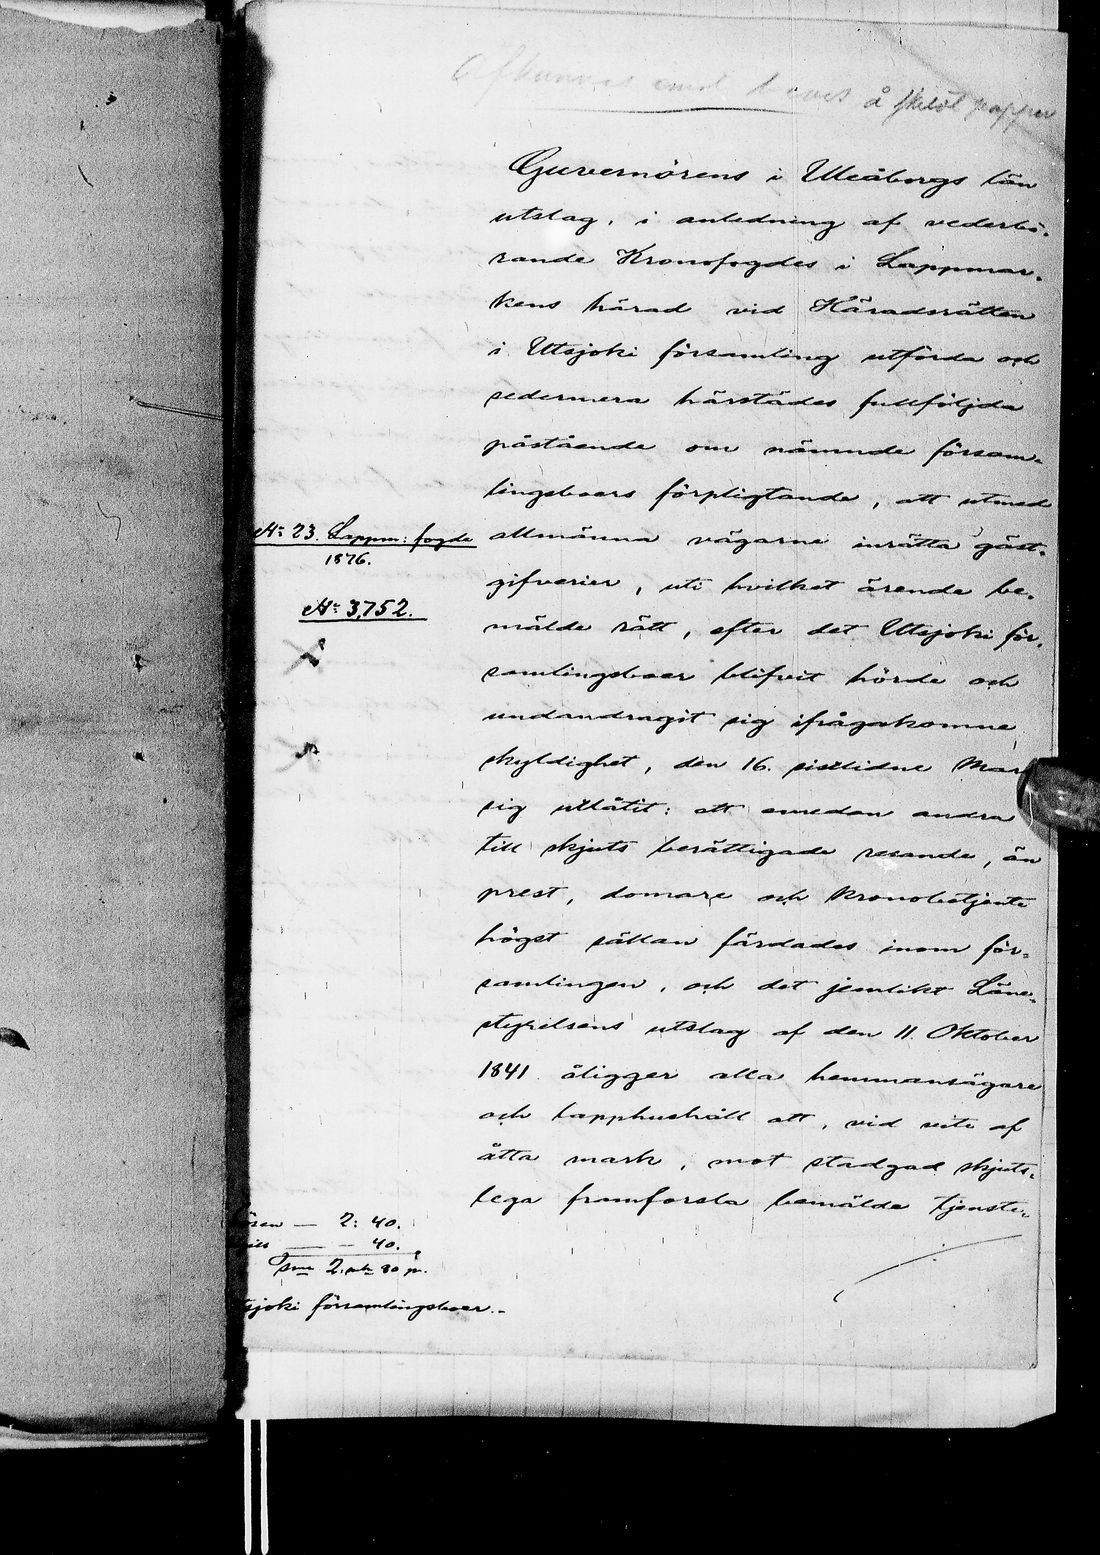 å skild papper
Guvernörens i Uleåborgs län
utslag, i anledning af vederbö-
rande Kronofogdes i Lappmar-
kens härad vid Häradsrätten
i Utsjoki församling utförda och
sedermera härstädes fullföljda
påstående om nämnde försam-
lingsboers förpligtande, att utmed
allmänna vägarne inrätta gäst-
gifverier, uti hvilket ärende be-
mälde rätt, efter det Utsjoki för-
samlingsboer blifvit hörde och
undandragit sig ifrågakomne
skyldighet, den 16. sistlidne Mars
sig utlåtit: att emedan andra
till skjuts berättigade resande, än
prest, domare och kronobetjente
högst sällan färdades inom för-
samlingen, och det jemlikt Läne-
styrelsens utslag af den 11. Oktober
1841 åligger alla hemmansägare
och lapphushåll att, vid vite af
åtta mark, mot stadgad skjuts-
lega framforsla bemälde tjenste-
No 23. Lappm: fogde
1876.
No 3,752.
ösen — 2: 40.
— 40.
Sma 2. mk 80 p.
sjoki församlingsboer.-